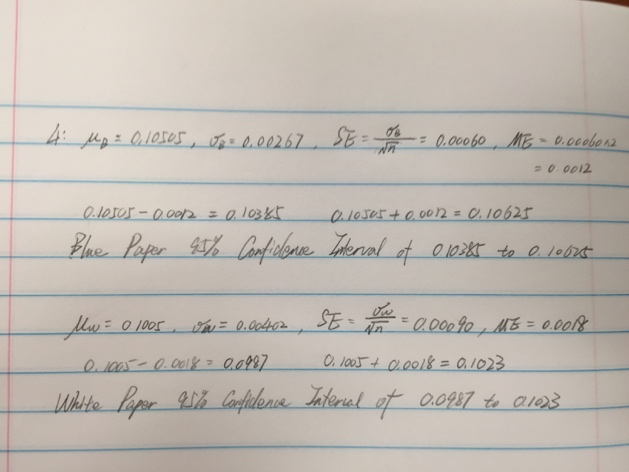 4: μ_B = 0.10505, σ_B = 0.00267, SE = σ_B/√n = 0.00060, ME = 0.00060×2
= 0.0012
0.10505 - 0.0012 = 0.10385 0.10505 + 0.0012 = 0.10625
Blue Paper 95% Confidence Interval of 0.10385 to 0.10625
μ_W = 0.1005, σ_W = 0.00402, SE = σ_W/√n = 0.00090, ME = 0.0018
0.1005 - 0.0018 = 0.0987 0.1005 + 0.0018 = 0.1023
White Paper 95% Confidence Interval of 0.0987 to 0.1023